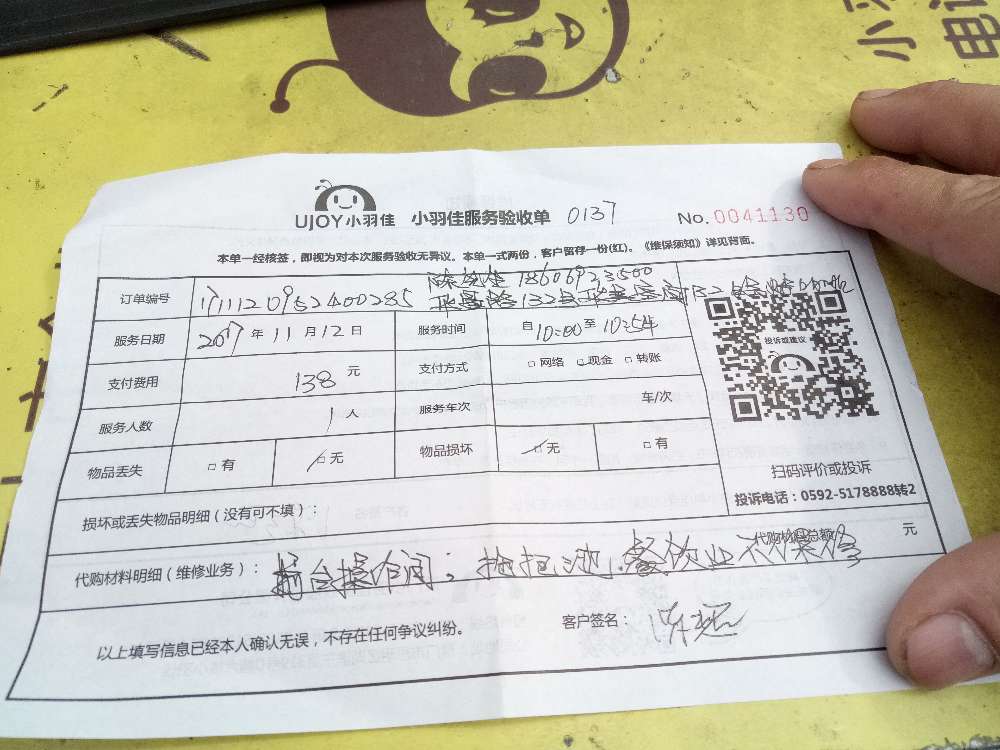 小
电
UJOY小羽佳 小羽佳服务验收单 0137 No.0041130
本单一经核签,即视为对本次服务验收无异议。本单一式两份,客户留存一份(红)。《维保须知》详见背面。
18606923500
订单编号
132
服务日期 2017 年 11 月 12 日 服务时间 自 10:00 至 10:54
投诉或建议
支付费用 138 元 支付方式 □网络 □现金 □转账
服务人数 1 人 服务车次 车/次
物品丢失 □有 □无 物品损坏 □无 □有
扫码评价或投诉
投诉电话:0592-5178888转2
损坏或丢失物品明细(没有可不填):
代购材料总额 元
代购材料明细(维修业务): 台操作间; 拖把池, 餐饮业不保修
以上填写信息已经本人确认无误,不存在任何争议纠纷。 客户签名: